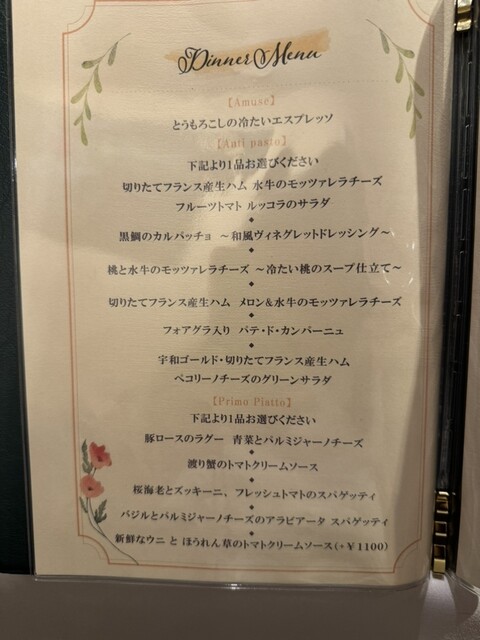 Dinner Menu
【Amuse】
とうもろこしの冷たいエスプレッソ
【Anti pasto】
下記より1品お選びください
切りたてフランス産生ハム 水牛のモッツァレラチーズ
フルーツトマト ルッコラのサラダ
黒鯛のカルパッチョ ～和風ヴィネグレットドレッシング～
桃と水牛のモッツァレラチーズ ～冷たい桃のスープ仕立て～
切りたてフランス産生ハム メロン&水牛のモッツァレラチーズ
フォアグラ入り パテ・ド・カンパーニュ
宇和ゴールド・切りたてフランス産生ハム
ペコリーノチーズのグリーンサラダ
【Primo Piatto】
下記より1品お選びください
豚ロースのラグー 青菜とパルミジャーノチーズ
渡り蟹のトマトクリームソース
桜海老とズッキーニ、フレッシュトマトのスパゲッティ
バジルとパルミジャーノチーズのアラビアータ スパゲッティ
新鮮なウニ と ほうれん草のトマトクリームソース(+￥1100)